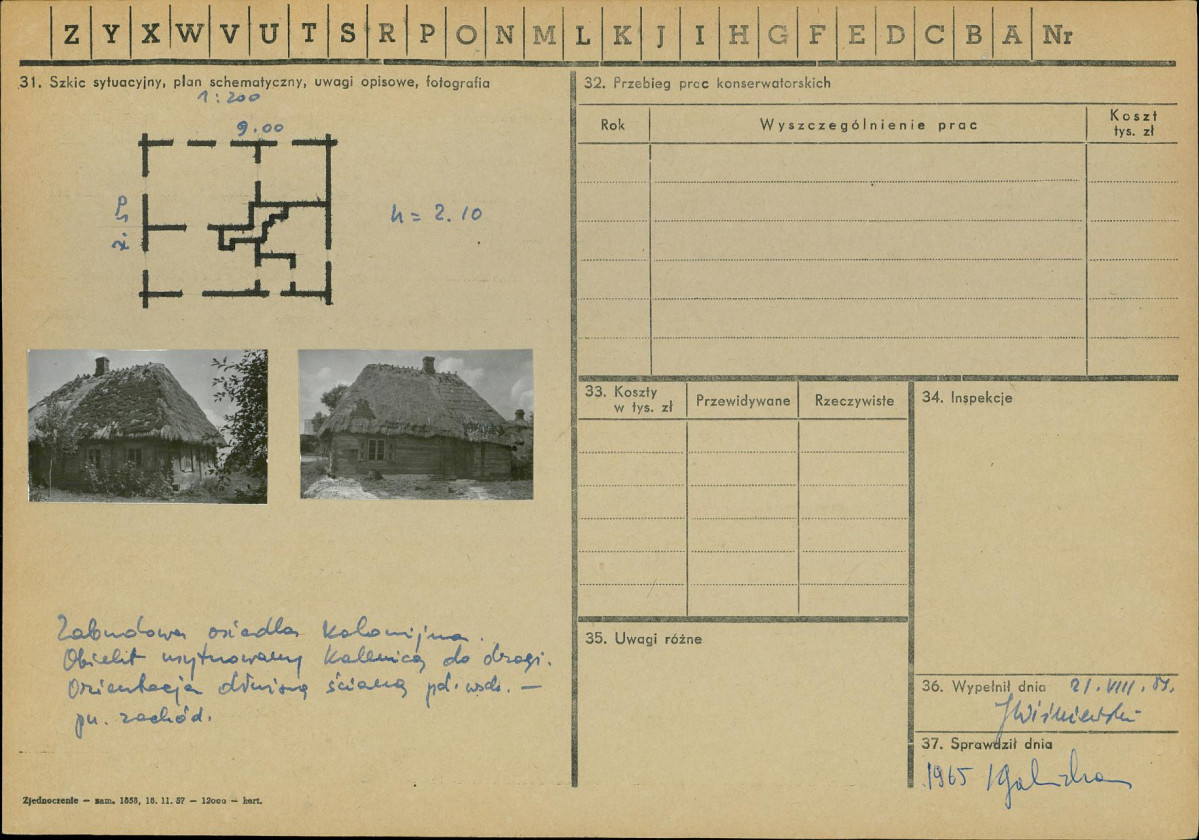 Z Y X W V U T S R P O N M L K J I H G F E D C B A Nr
31. Szkic sytuacyjny, plan schematyczny, uwagi opisowe, fotografia
1:200
9.00
h = 2.10
Zabudowa osiedla kolonijna.
Obiekt usytuowany kalenicą do drogi.
Orientacja dłuższą ścianą pd. wsch. –
pn. zachód.
Zjednoczenie — zam. 1858, 18. 11. 57 — 12000 — kart.
32. Przebieg prac konserwatorskich
Rok
Wyszczególnienie prac
Koszt
tys. zł
33. Koszty
w tys. zł
Przewidywane
Rzeczywiste
34. Inspekcje
35. Uwagi różne
36. Wypełnił dnia 21.VIII.59.
JWiśniewski
37. Sprawdził dnia
1965